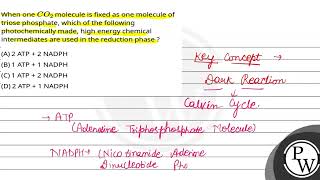 When one CO₂ molecule is fixed as one molecule of
triose phosphate, which of the following
photochemically made, high energy chemical
intermediates are used in the reduction phase ?
(A) 2 ATP + 2 NADPH
(B) 1 ATP + 1 NADPH
(C) 1 ATP + 2 NADPH
(D) 2 ATP + 1 NADPH
Key Concept →
Dark Reaction
↓
Calvin Cycle.
→ ATP
(Adenoline Triphosphosphate Molecule)
NADPH → (Nicotinamide Adenine
Dinucleotide Pho
PW